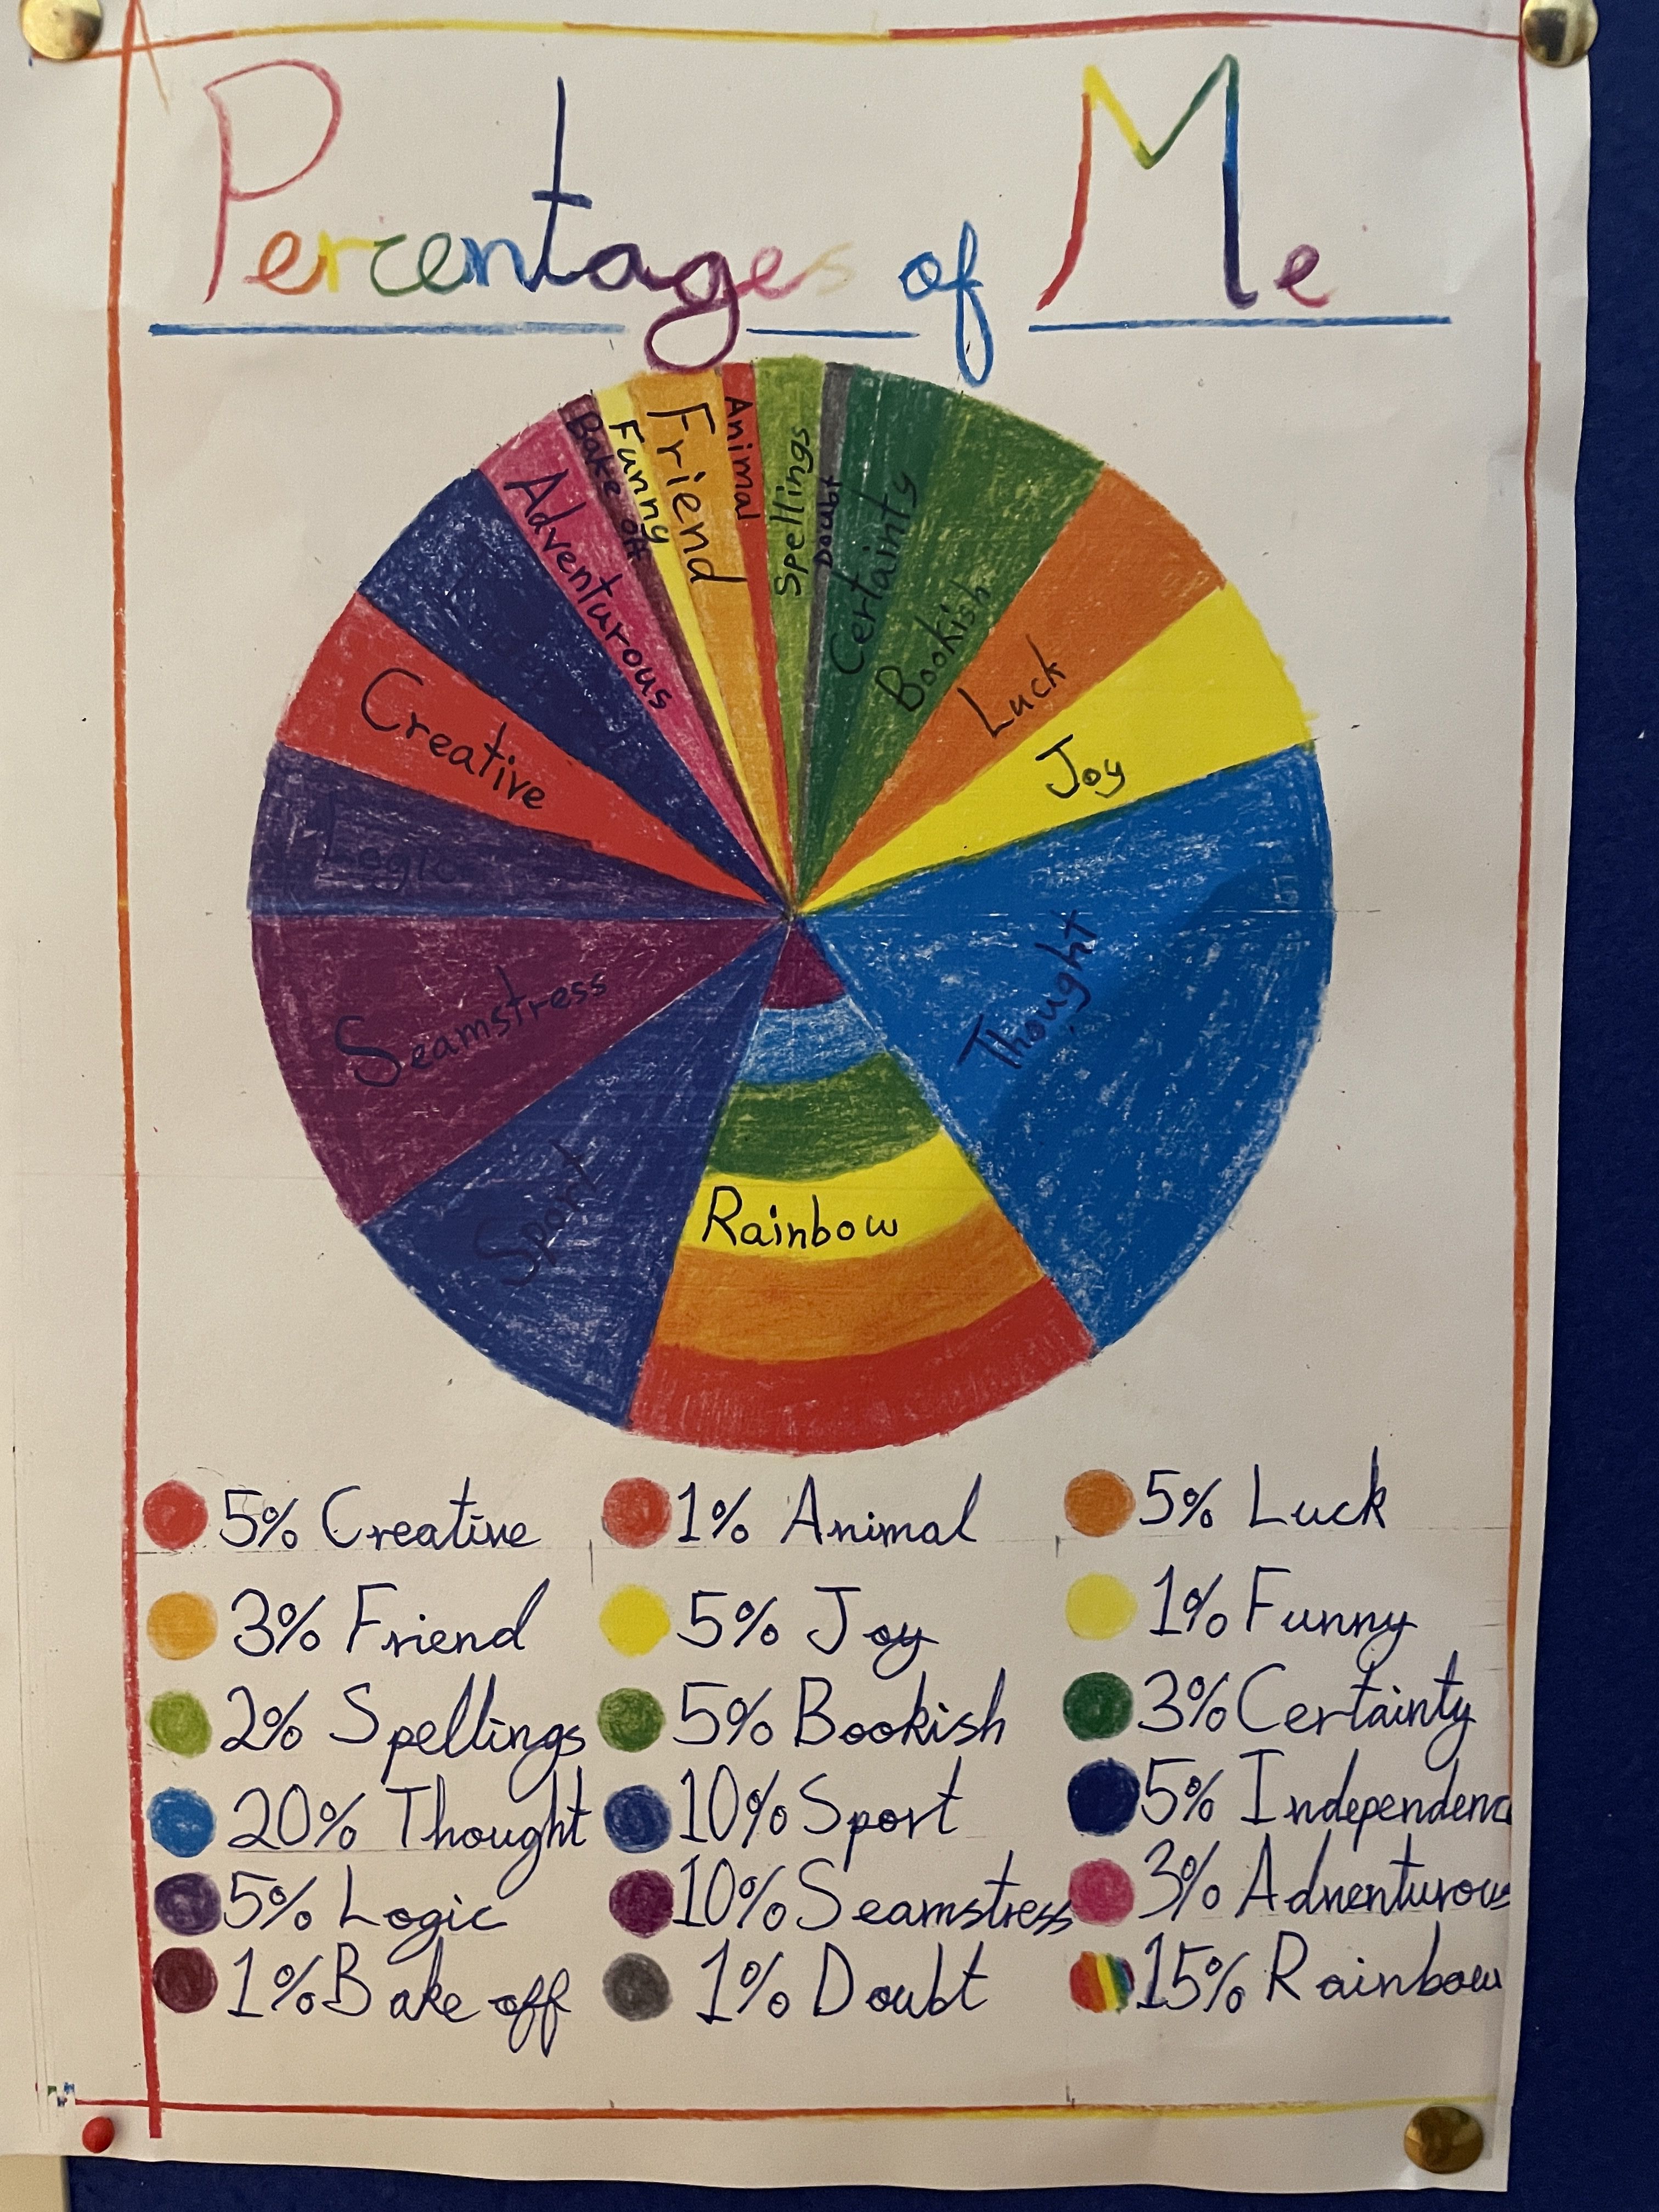 Percentages of Me
Adventurous
Bake off
Funny
Friend
Animal
Spellings
Doubt
Certainty
Bookish
Luck
Joy
Creative
Logic
Thought
Seamstress
Sport
Rainbow
5% Creative 1% Animal 5% Luck
3% Friend 5% Joy 1% Funny
2% Spellings 5% Bookish 3% Certainty
20% Thought 10% Sport 5% Independenc
5% Logic 10% Seamstress 3% Adventurous
1% Bake off 1% Doubt 15% Rainbow